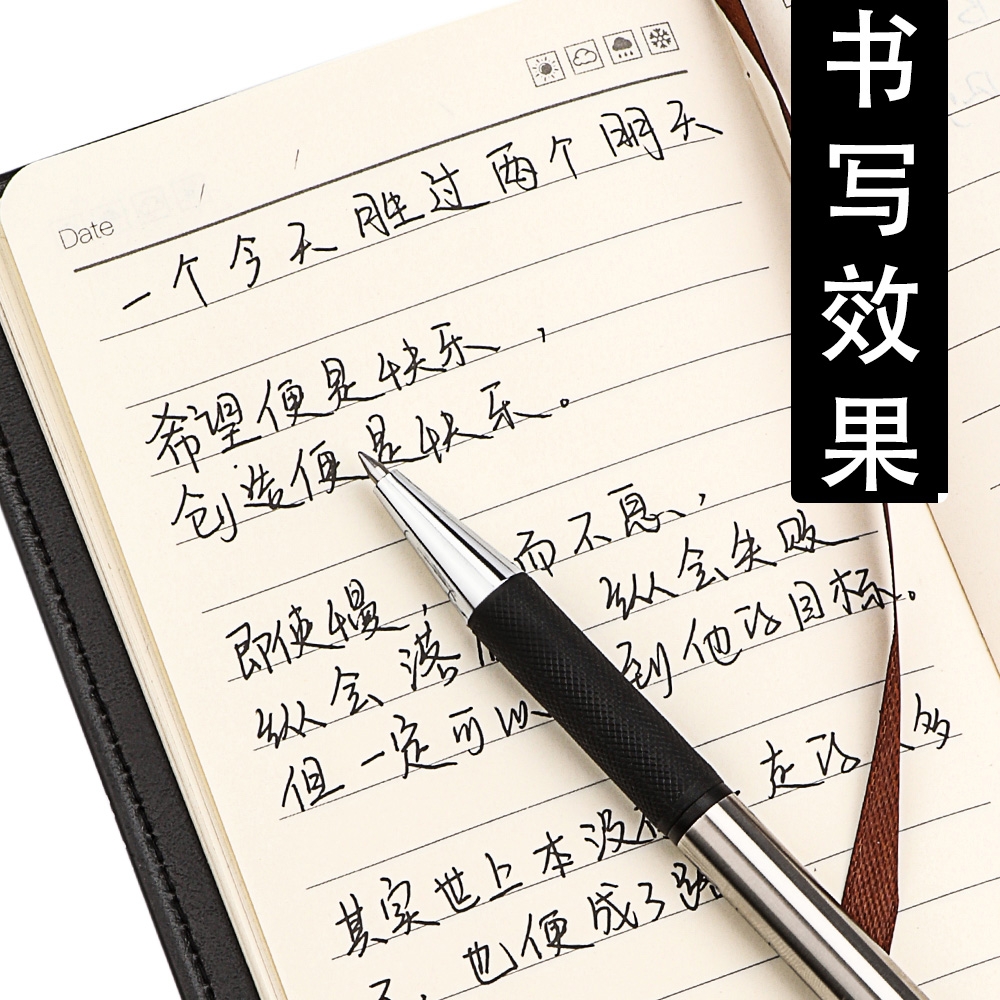 书写效果
Date / /
一个今天胜过两个明天
希望便是快乐，
创造便是快乐。
即使慢，而不息，
纵会落 纵会失败
但一定可以 到他的目标。
其实世上本没 走的 多
了，也便成了路